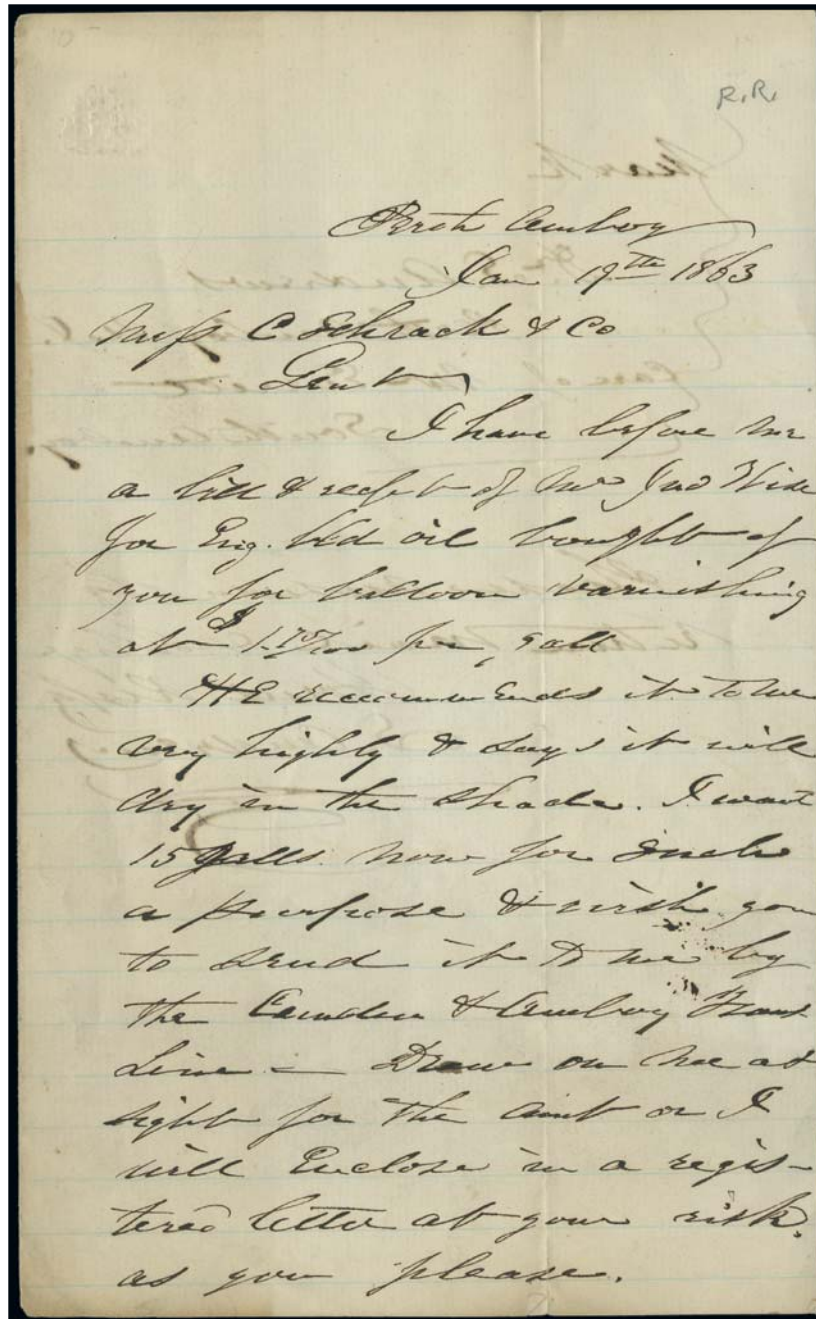 R.R.
Perth Amboy
Jan 19th 1863
Mess C Schrack & Co
Gents
I have before me
a bill & recpt of Mr Jno Wise
for Eng. Lsd oil bought of
you for balloon varnishing
at $1.75/100 per gall
HE recommends it to me
very highly & says it will
dry in the shade. I want
15 galls. now for such
a purpose & wish you
to send it to me by
the Camden & Amboy Trans
Line — Draw on me at
sight for the amt or I
will Enclose in a regis-
tered letter at your risk.
as you please.